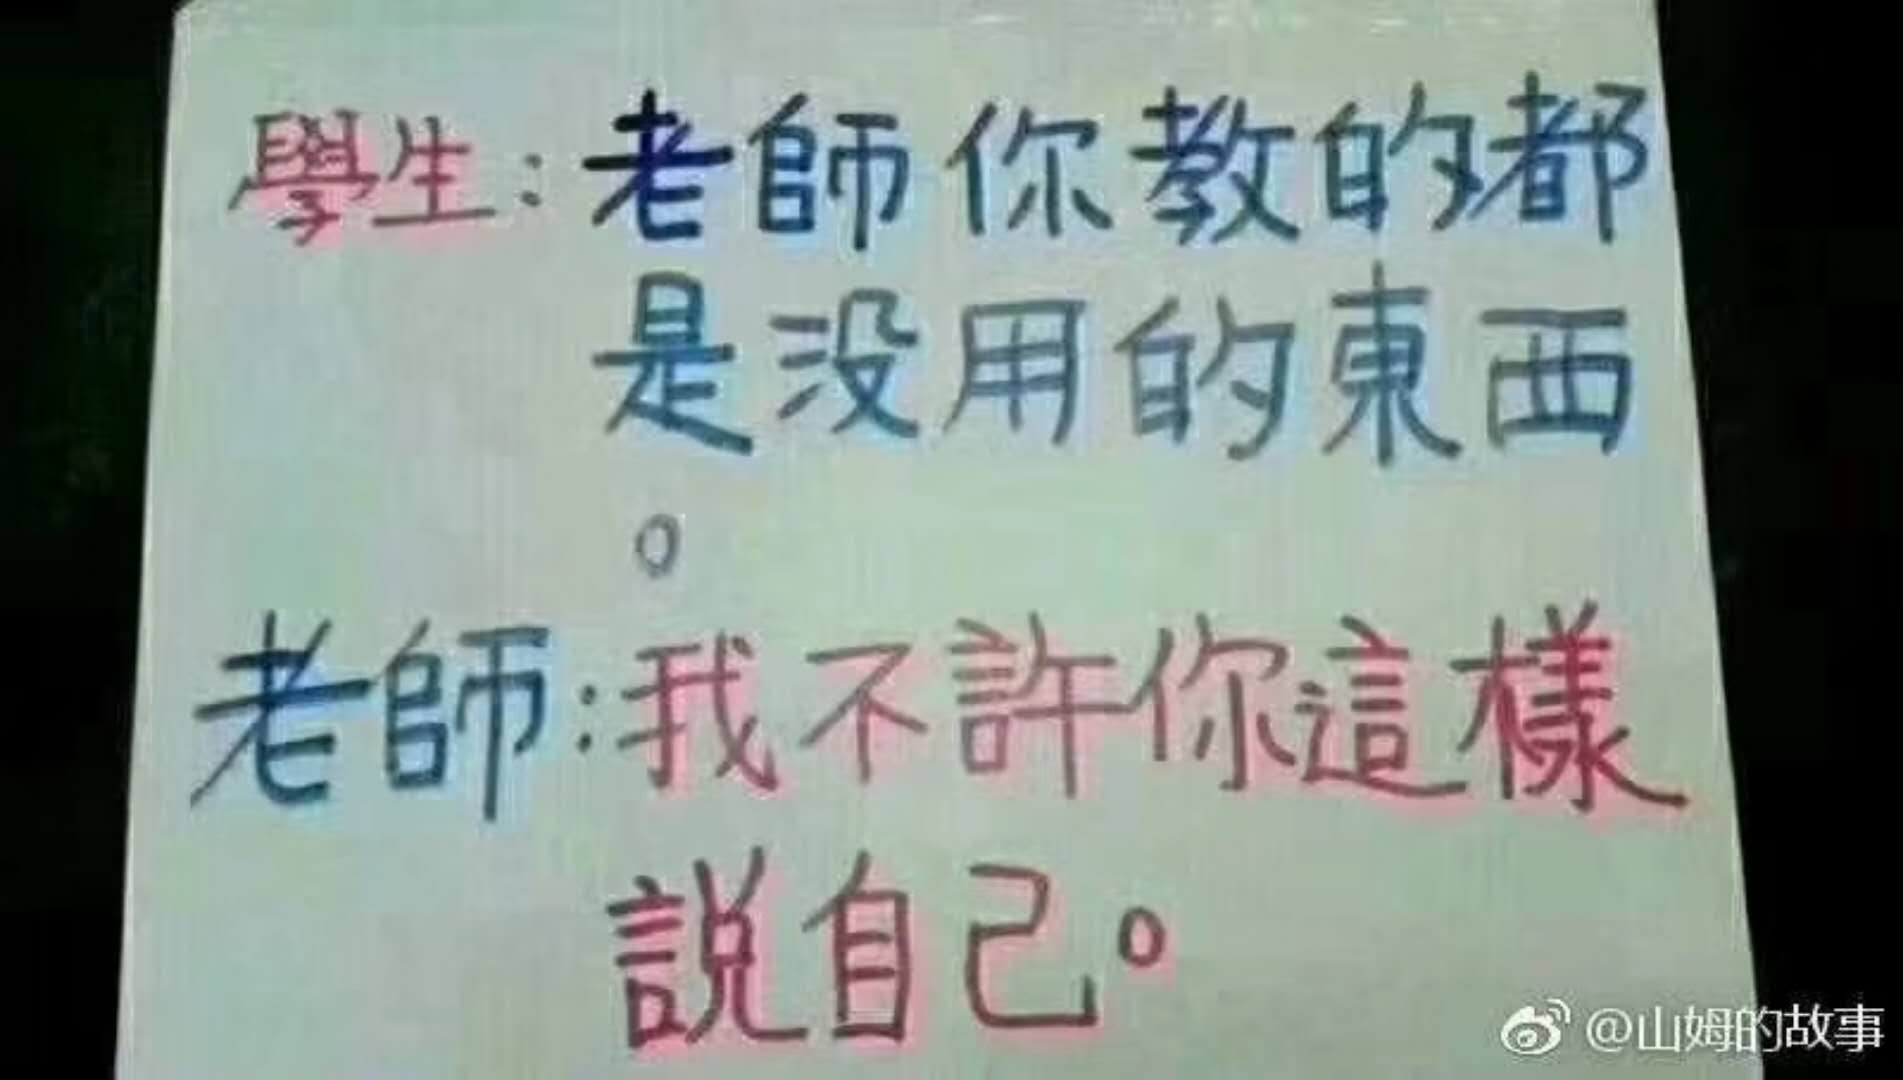 學生:老師你教的都
是没用的東西
。
老師:我不許你這樣
説自己。
@山姆的故事